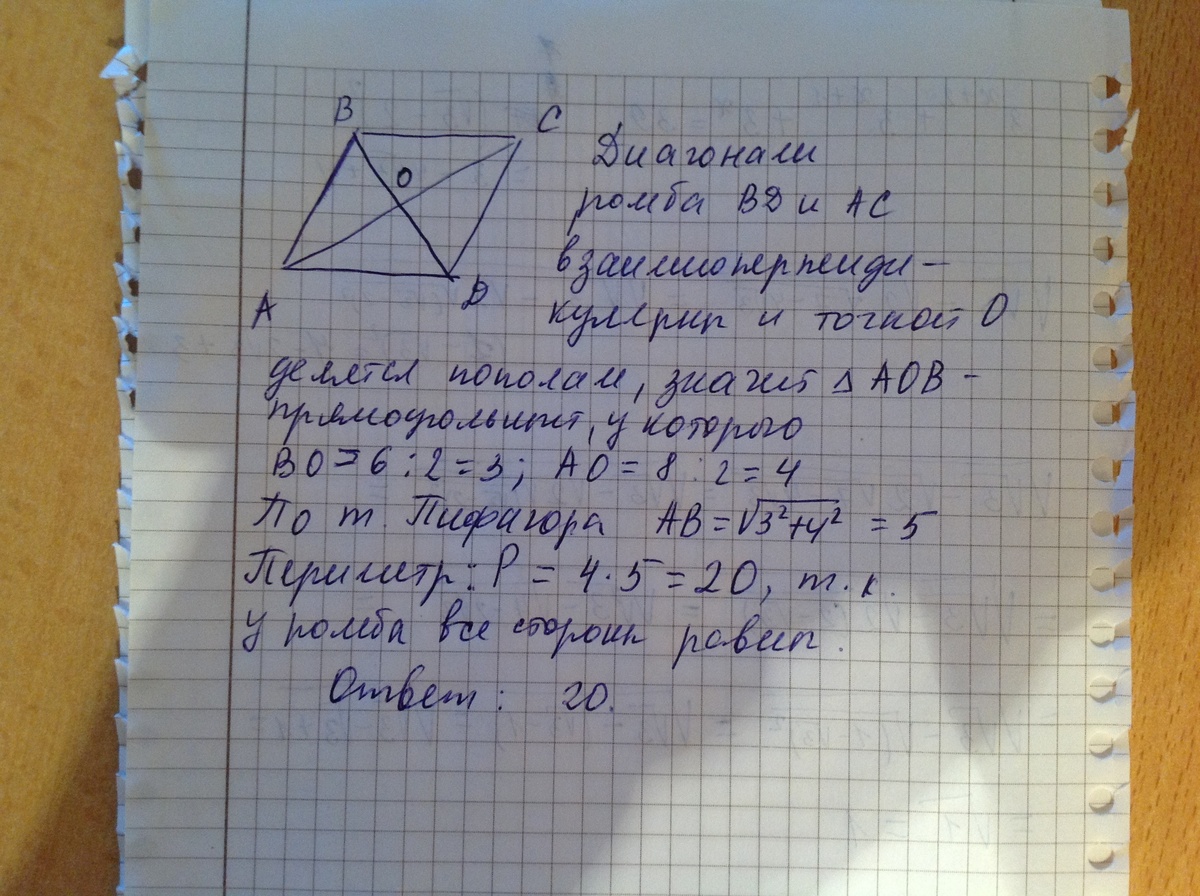 B
C
O
A
D
Диагонали
ромба BD и AC
взаимоперпенди-
кулярны и точкой O
делятся пополам, значит △ AOB -
прямоугольный, у которого
BO = 6 : 2 = 3; AO = 8 : 2 = 4
По т. Пифагора AB = √3²+4² = 5
Периметр: P = 4 · 5 = 20, т.к.
у ромба все стороны равны.
Ответ: 20.